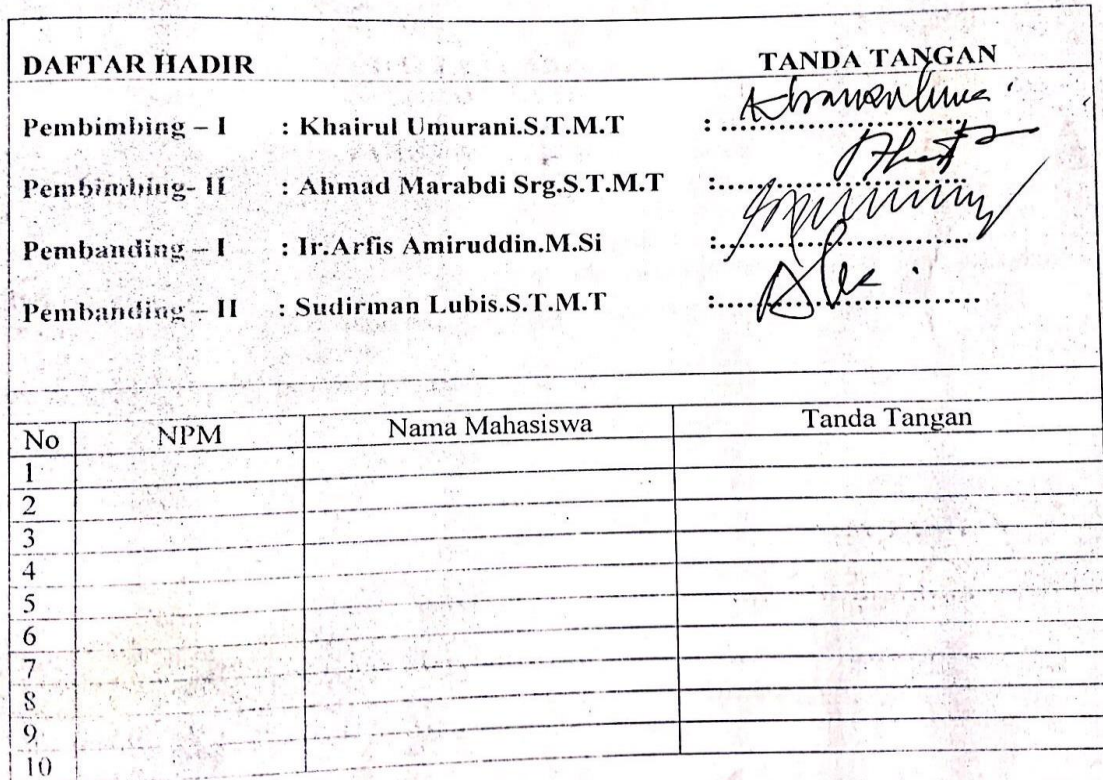 DAFTAR HADIR TANDA TANGAN
Pembimbing – I : Khairul Umurani.S.T.M.T : ..............................
Pembimbing- II : Ahmad Marabdi Srg.S.T.M.T :..............................
Pembanding – I : Ir.Arfis Amiruddin.M.Si :..............................
Pembanding – II : Sudirman Lubis.S.T.M.T :..............................
No NPM Nama Mahasiswa Tanda Tangan
1
2
3
4
5
6
7
8
9
10